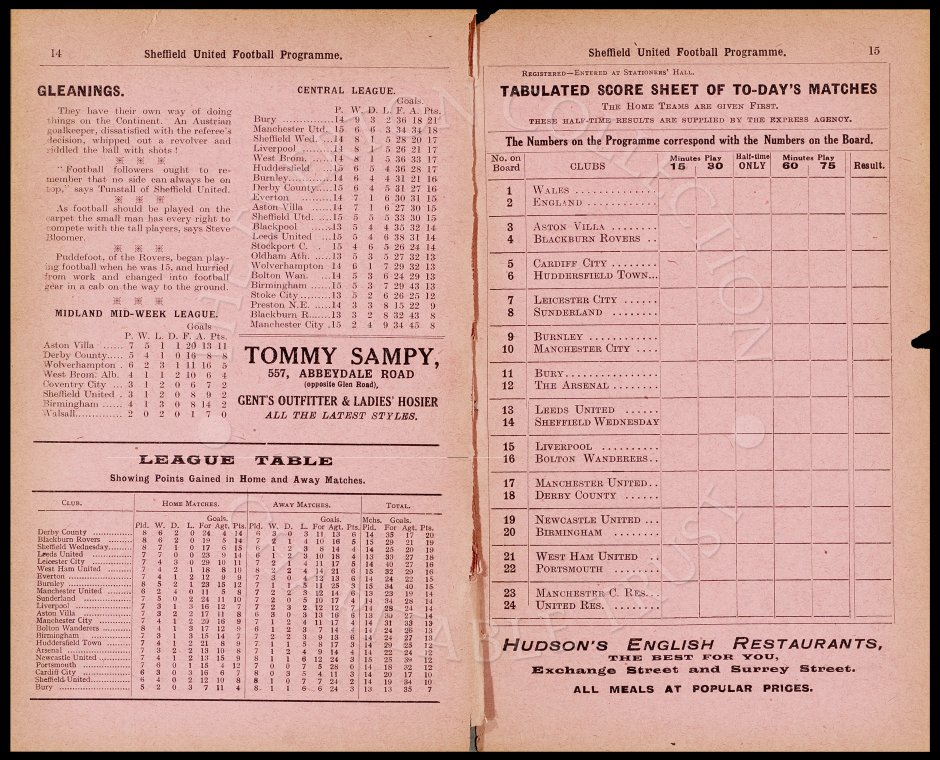 14
Sheffield United Football Programme.
GLEANINGS.
They have their own way of doing
things on the Continent. An Austrian
goalkeeper, dissatisfied with the referee's
decision, whipped out a revolver and
riddled the ball with shots!
"Football followers ought to re-
member that no side can always be on
top," says Tunstall of Sheffield United.
As football should be played on the
carpet the small man has every right to
compete with the tall players, says Steve
Bloomer.
Puddefoot, of the Rovers, began play-
ing football when he was 15, and hurried
from work and changed into football
gear in a cab on the way to the ground.
MIDLAND MID-WEEK LEAGUE.
Goals
P. W. L. D. F. A. Pts.
Aston Villa ...... 7 5 1 1 20 13 11
Derby County..... 5 4 1 0 16 8 8
Wolverhampton . 6 2 3 1 11 16 5
West Brom. Alb. 4 1 1 2 10 6 4
Coventry City ... 3 1 2 0 6 7 2
Sheffield United . 3 1 2 0 8 9 2
Birmingham ...... 4 1 3 0 8 14 2
Walsall.............. 2 0 2 0 1 7 0
CENTRAL LEAGUE.
Goals.
P. W. D. L. F. A. Pts.
Bury ...............14 9 3 2 36 18 21
Manchester Utd. 15 6 6 3 34 34 18
Sheffield Wed. ...14 8 1 5 28 20 17
Liverpool .........14 8 1 5 26 21 17
West Brom. ......14 8 1 5 36 33 17
Huddersfield ...15 6 5 4 36 28 17
Burnley............14 6 4 4 31 21 16
Derby County....15 6 4 5 31 27 16
Everton .........14 7 1 6 30 31 15
Aston Villa ......14 7 1 6 27 30 15
Sheffield Utd. ...15 5 5 5 33 30 15
Blackpool ......13 5 4 4 35 32 14
Leeds United ...15 5 4 6 38 31 14
Stockport C. ...15 4 6 5 26 24 14
Oldham Ath. ....13 5 3 5 27 32 13
Wolverhampton 14 6 1 7 29 32 13
Bolton Wan. 14 5 3 6 24 29 13
Birmingham ......15 5 3 7 29 43 13
Stoke City.........13 5 2 6 26 25 12
Preston N.E. ....14 3 3 8 15 22 9
Blackburn R.......13 3 2 8 32 43 8
Manchester City .15 2 4 9 34 45 8
TOMMY SAMPY,
557, ABBEYDALE ROAD
(opposite Glen Road),
GENT'S OUTFITTER & LADIES' HOSIER
ALL THE LATEST STYLES.
LEAGUE TABLE
Showing Points Gained in Home and Away Matches.
CLUB. HOME MATCHES. AWAY MATCHES. TOTAL.
Goals. Goals. Mchs. Goals.
Pld. W. D. L. For Agt. Pts. Pld. W. D. L. For Agt. Pts. Pld. For Agt. Pts.
Derby County ......... 8 6 2 0 24 4 14 6 3 0 3 11 13 6 14 35 17 20
Blackburn Rovers 8 6 2 0 19 5 14 7 2 1 4 10 16 5 15 29 21 19
Sheffield Wednesday......... 8 7 1 0 17 6 15 6 1 2 3 8 14 4 14 25 20 19
Leeds United ......... 7 7 0 0 23 9 14 6 1 2 3 10 18 4 13 33 27 18
Leicester City ......... 7 4 3 0 29 10 11 7 2 1 4 11 17 5 14 40 27 16
West Ham United ......... 7 4 2 1 18 8 10 8 2 2 4 14 21 6 15 32 29 16
Everton ......... 7 4 1 2 12 9 9 7 3 0 4 12 13 6 14 24 22 15
Burnley ......... 8 5 2 1 23 15 12 7 1 1 5 11 25 3 15 34 40 15
Manchester United ......... 6 2 4 0 11 5 8 7 2 2 3 12 14 6 13 23 19 14
Sunderland ......... 7 5 0 2 24 11 10 7 2 0 5 10 17 4 14 34 28 14
Liverpool ......... 7 3 1 3 16 12 7 7 2 3 2 12 12 7 14 28 24 14
Aston Villa ......... 7 3 2 2 17 11 8 6 3 0 3 13 16 6 13 30 27 14
Manchester City ......... 7 4 1 2 20 16 9 7 1 2 4 11 17 4 14 31 33 13
Bolton Wanderers ......... 8 4 1 3 17 12 9 6 1 2 3 7 14 4 14 24 26 13
Birmingham ......... 7 3 1 3 15 14 7 7 2 2 3 9 13 6 14 24 27 13
Huddersfield Town ......... 7 4 1 2 21 8 9 7 1 1 5 8 17 3 14 29 25 12
Arsenal ......... 7 3 2 2 13 10 8 7 1 2 4 9 14 4 14 22 24 12
Newcastle United ......... 7 4 1 2 13 15 9 8 1 1 6 12 24 3 15 25 39 12
Portsmouth ......... 7 6 0 1 15 4 12 7 0 0 7 5 28 0 14 18 32 12
Cardiff City ......... 6 3 0 3 16 6 7 8 0 3 5 4 11 3 14 20 17 10
Sheffield United......... 6 4 0 2 12 10 8 8 1 0 7 7 24 2 14 19 34 10
Bury ......... 5 2 0 3 7 11 4 8 1 1 6 6 24 3 13 13 35 7
Sheffield United Football Programme.
15
REGISTERED—ENTERED AT STATIONERS' HALL.
TABULATED SCORE SHEET OF TO-DAY'S MATCHES
THE HOME TEAMS ARE GIVEN FIRST.
THESE HALF-TIME RESULTS ARE SUPPLIED BY THE EXPRESS AGENCY.
The Numbers on the Programme correspond with the Numbers on the Board.
No. on Board CLUBS Minutes Play 15 30 Half-time ONLY Minutes Play 60 75 Result.
1 WALES ...............
2 ENGLAND .............
3 ASTON VILLA ........
4 BLACKBURN ROVERS ..
5 CARDIFF CITY ........
6 HUDDERSFIELD TOWN...
7 LEICESTER CITY ......
8 SUNDERLAND ........
9 BURNLEY ............
10 MANCHESTER CITY ....
11 BURY................
12 THE ARSENAL ........
13 LEEDS UNITED ......
14 SHEFFIELD WEDNESDAY
15 LIVERPOOL ..........
16 BOLTON WANDERERS..
17 MANCHESTER UNITED..
18 DERBY COUNTY ......
19 NEWCASTLE UNITED ...
20 BIRMINGHAM ........
21 WEST HAM UNITED ..
22 PORTSMOUTH ........
23 MANCHESTER C. RES...
24 UNITED RES. ........
HUDSON'S ENGLISH RESTAURANTS,
THE BEST FOR YOU,
Exchange Street and Surrey Street.
ALL MEALS AT POPULAR PRICES.